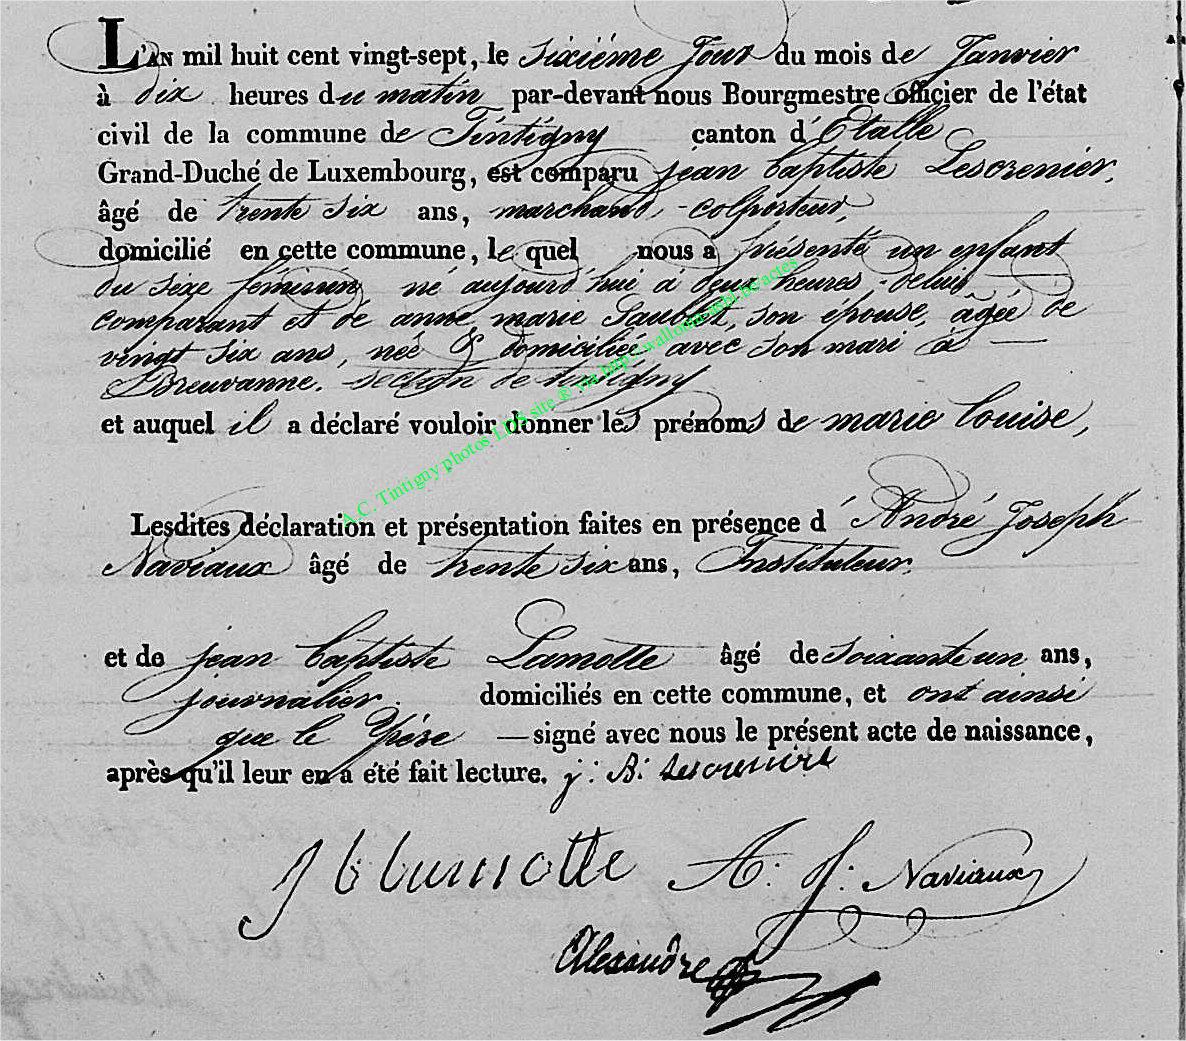 L'AN mil huit cent vingt-sept, le sixiéme jour du mois de Janvier
à dix heures du matin par-devant nous Bourgmestre officier de l'état
civil de la commune de Tintigny canton d'Etalle
Grand-Duché de Luxembourg, est comparu jean baptiste Lescrenier,
âgé de trente six ans, marchand-colporteur,
domicilié en cette commune, le quel nous a présenté un enfant
du sexe féminin né aujourd'hui à deux heures, de lui
comparant et de anne marie Saublet, son épouse, âgée de
vingt six ans, née & domiciliée avec son mari à —
Breuvanne, section de tintigny
et auquel il a déclaré vouloir donner les prénoms de marie louise,
Lesdites déclaration et présentation faites en présence d'André Joseph
Naviaux âgé de trente six ans, Instituteur,
et de jean baptiste Lamotte âgé de soixante un ans,
journalier. domiciliés en cette commune, et ont ainsi
que le Père — signé avec nous le présent acte de naissance,
après qu'il leur en a été fait lecture. j: B: Lescrenier
J b lamotte A: J: Naviaux
Alexandre
A.C. Tintigny photos LDS site ® via http://wallonia-asbl.be/actes